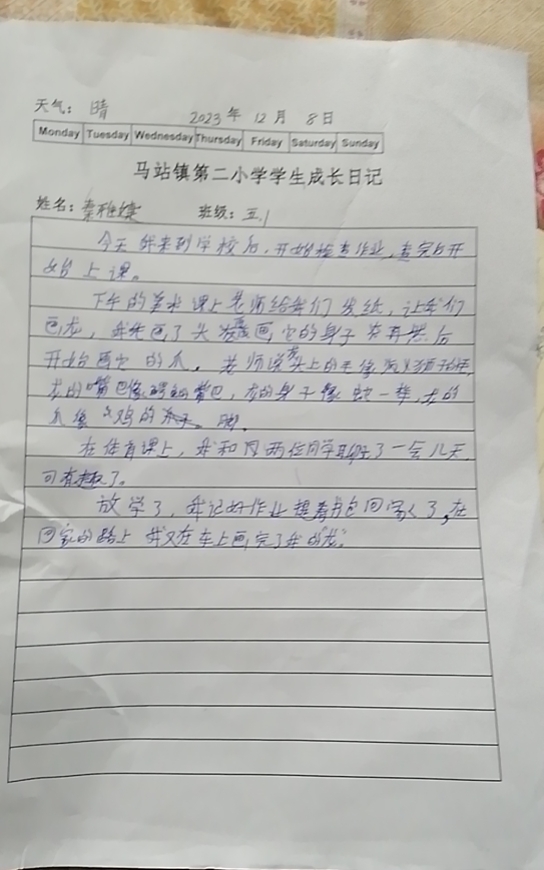 天气: 晴 2023年 12月 8日
Monday Tuesday Wednesday Thursday Friday Saturday Sunday
马站镇第二小学学生成长日记
姓名: 秦 班级: 五.1
今天 我来到学校后,开始检查作业,查完后开
始上课。
下午的美术课上老师给我们发纸,让我们
画龙,我先画了头 然后画它的身子 然后
开始画它的爪。老师说 头上的毛像 狮子一样,
龙的嘴巴像 嘴巴,龙的身子像 蛇一样,龙的
爪像 鸡的 脚。
在体育课上,我和 两位同学聊了一会儿天
可有趣了。
放学了,我记好作业 书包回家了,在
回家的路上 我又在车上画完了我的龙。